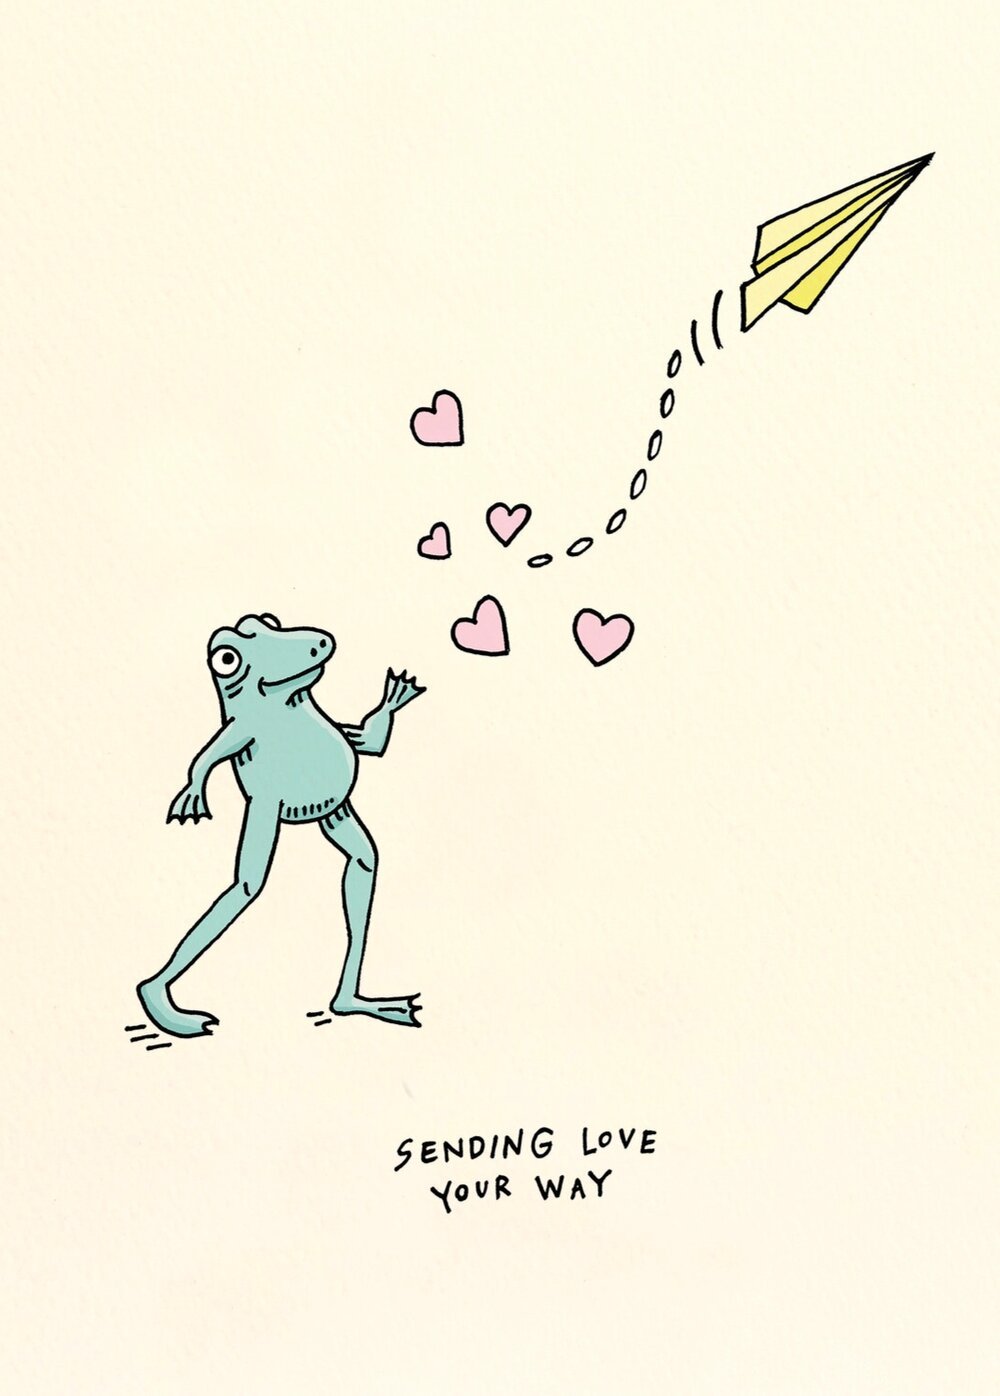 SENDING LOVE
YOUR WAY